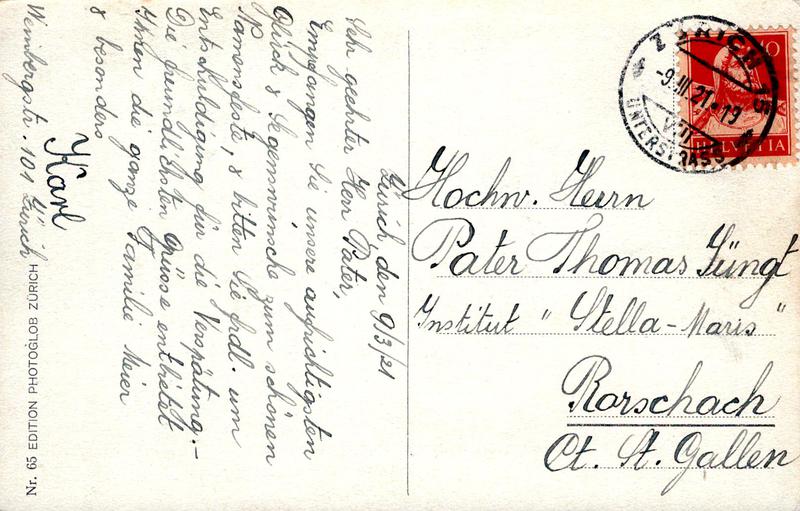 Zürich den 9/3/21
Sehr geehrter Herr Pater,
Empfangen Sie unsere aufrichtigsten
Glück & Segenwünsche zum schönen
Namensfeste, & bitten Sie frdl. um
Entschuldigung für die Verspätung.-
Die freundlichsten Grüsse entbietet
Ihnen die ganze Familie Meier
& besonders
Karl
Weinbergstr. 101 Zürich
Nr. 65 EDITION PHOTOGLOB ZÜRICH
ZÜRICH 15
-9.III.21.-19
VIII
UNTERSTRASS
10
HELVETIA
Hochw. Herrn
Pater Thomas Jüngt
Institut "Stella-Maris"
Rorschach
Ct. St. Gallen